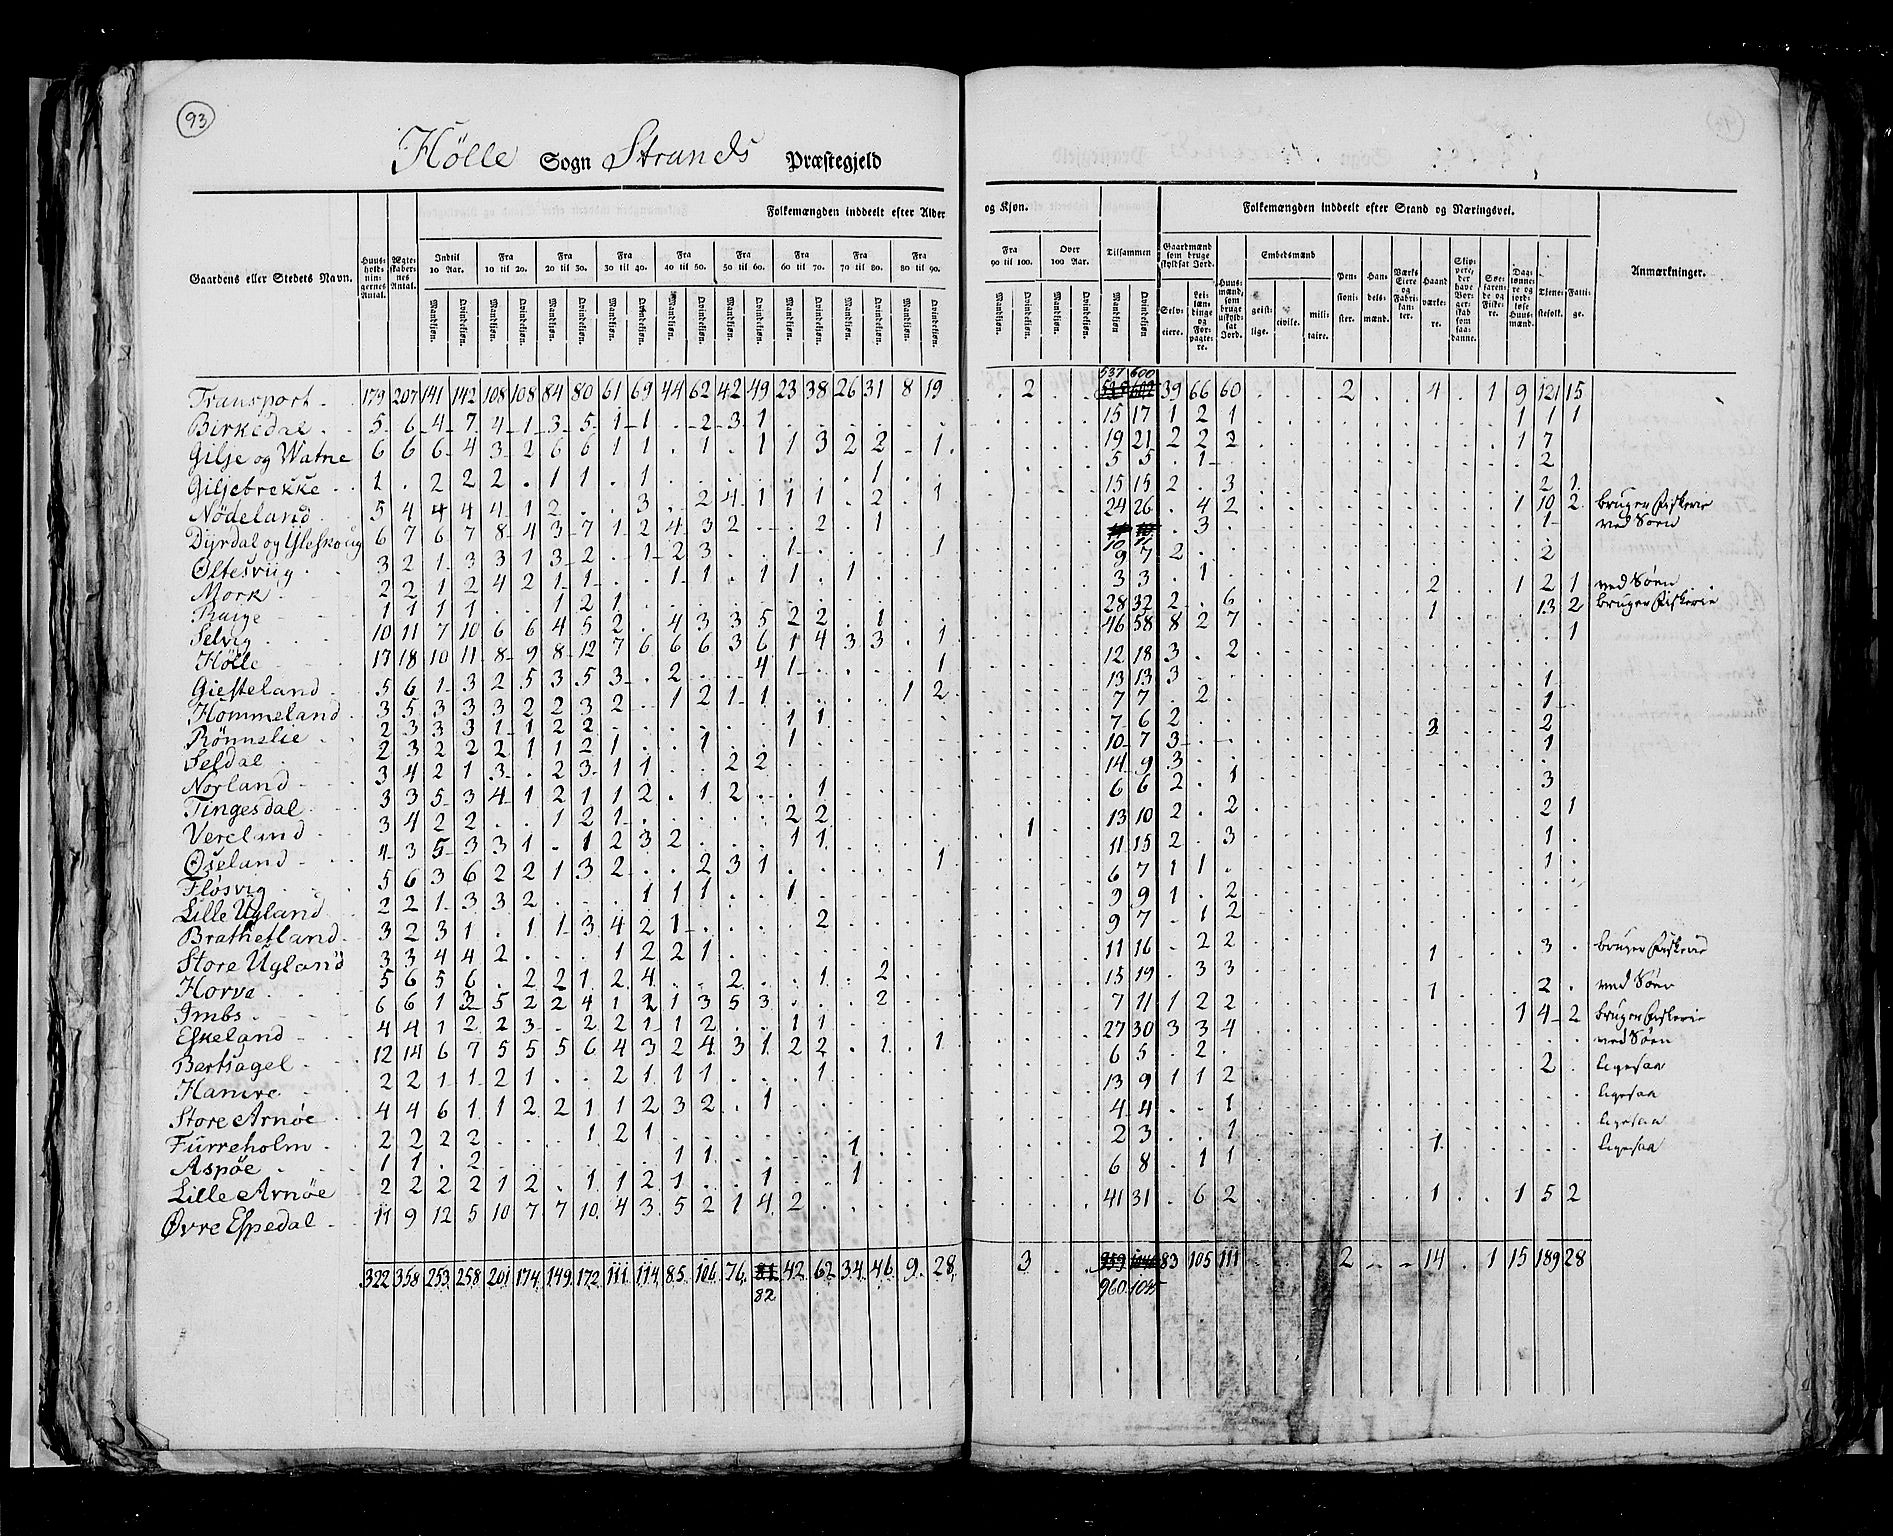 93
Hölle Sogn Strands Præstegjeld
Folkemængden inddeelt efter Alder og Kjøn.
Folkemængden inddeelt efter Stand og Næringsvei.
Gaardens eller Stedets Navn.
Huusholdningernes Antal.
Ægteskabernes Antal.
Indtil 10 Aar.
Fra 10 til 20.
Fra 20 til 30.
Fra 30 til 40.
Fra 40 til 50.
Fra 50 til 60.
Fra 60 til 70.
Fra 70 til 80.
Fra 80 til 90.
Fra 90 til 100.
Over 100 Aar.
Tilsammen
Mandkjøn. Qvindekjøn.
Gaardmænd som bruge skyldsat Jord.
Selveiere.
Leilændinge og Forpagtere.
Huusmænd, som bruge uskyldsat Jord.
Embedsmænd
geistlige. civile. militaire.
Pensionister.
Handelsmænd.
Værks Eiere og Fabrikanter.
Haandværkere.
Skippere, der have Borgerskab som saadanne.
Søefarende og Fiskere.
Daglønnere og jordløse Huusmænd.
Tjenestefolk.
Fattige.
Anmærkninger.
537 600
Transport 179 207 141 142 108 108 84 80 61 69 44 62 42 49 23 38 26 31 8 19 . 2 39 66 60 2 4 1 9 121 15
Birkedal 5 6 4 7 4 1 3 5 1 1 . 2 3 1 15 17 1 2 1 1 1 1
Gilje og Watne 6 6 6 4 3 2 6 6 1 1 . 1 . 1 1 3 2 2 . 1 19 21 2 2 2 1 7
Giljebrekke 1 . 2 2 2 . 1 1 . 1 1 5 5 . 1 2
Nödeland 5 4 4 4 4 1 2 . . 3 . 2 4 1 1 1 . 2 . 1 15 15 2 . 3 2 1
Dyrdal og 6 7 6 7 8 4 3 7 1 2 4 3 2 . . 2 . 1 24 26 . 4 2 1 10 2 bruger Fiskerie
Oltesviig 3 2 1 3 3 1 3 2 . 1 2 3 . . 1 1 10 11 . 3 1 ved Søen
Mork 2 2 1 2 4 2 1 1 . . 1 1 . 1 1 . 1 9 7 2 2
1 1 1 1 . . 1 2 1 3 3 . 1 2 1 2 1 ved Søen
Selvig 10 11 7 10 6 6 4 5 2 . 4 3 3 5 2 2 . 1 28 32 2 . 6 1 13 2 bruger Fiskerie
Hölle 17 18 10 11 8 9 8 12 7 6 6 6 3 6 1 4 3 3 . 1 46 58 8 2 7 1
Giesteland 5 6 1 3 2 5 3 5 3 . 2 . . 4 1 1 12 18 3 . 2
Hommeland 3 5 3 3 3 2 2 3 2 . 1 2 1 1 1 2 13 13 3 1
Rönnelie 2 3 3 3 1 1 2 2 1 1 7 7 . 2 1
Seldal 2 3 2 2 2 1 1 2 1 . . 1 . . 1 7 6 2 3 2
Norland 3 4 2 1 3 . 2 3 1 1 . . 2 2 10 7 3 1
Tingesdal 3 3 5 3 4 1 2 1 1 2 . 1 2 . . 1 14 9 3
Vereland 3 4 2 2 . . 1 2 1 2 2 6 6 2 . 1 3
Øseland 4 3 5 3 3 1 . 1 2 3 2 . . . 1 1 1 13 10 2 . 2 2 1
Flösvig 5 6 3 6 2 2 1 3 2 . . 2 3 1 1 11 15 2 . 3 1
Lille Ugland 2 2 1 3 3 2 . . . 1 1 1 . . 1 6 7 1 1 1
Brathetland 3 2 3 1 . 1 1 3 4 2 1 2 9 9 1 . 2
Store Ugland 3 3 4 4 2 . . . 1 2 2 1 9 7 . 1 2
Horve 5 6 5 6 . 2 2 1 2 4 . . 2 . . 1 . 2 11 16 . 2 2 1 3 bruger Fiskerie
Imbs 6 6 1 5 2 2 4 1 2 1 3 5 3 2 15 19 . 3 3 1 2 ved Søen
Eskeland 4 4 1 2 2 3 . 2 2 1 1 2 . . 1 1 7 11 1 2 2 1 4 2 bruger Fiskerie
Bertsagel 12 14 6 7 5 5 5 6 4 3 2 4 3 1 2 2 . 1 . 1 27 30 3 3 4 ved Søen
Hamre 2 2 1 1 2 1 . . 2 1 1 1 . . . 1 6 5 . 2 2 ligesaa
Store Arnöe 4 4 6 1 1 2 2 1 1 2 3 2 . 1 13 9 1 1 2 ligesaa
Furreholm 2 2 2 2 . . . 1 2 1 4 4 . . 1 ligesaa
Aspöe 1 1 . 2 1 1 1 2 3 . . 1 1 ligesaa
Lille Arnöe 2 2 2 2 1 2 . 1 1 2 1 . . 1 . . 1 6 8 . 1 1
Øvre Espedal 11 9 12 5 10 7 7 10 4 3 5 2 1 4 2 41 31 . 6 2 1 1 5 2
322 358 253 258 201 174 149 172 111 114 85 106 76 81 42 62 34 46 9 28 3 959 1046 83 105 111 2 14 1 15 189 28
82
960 1045